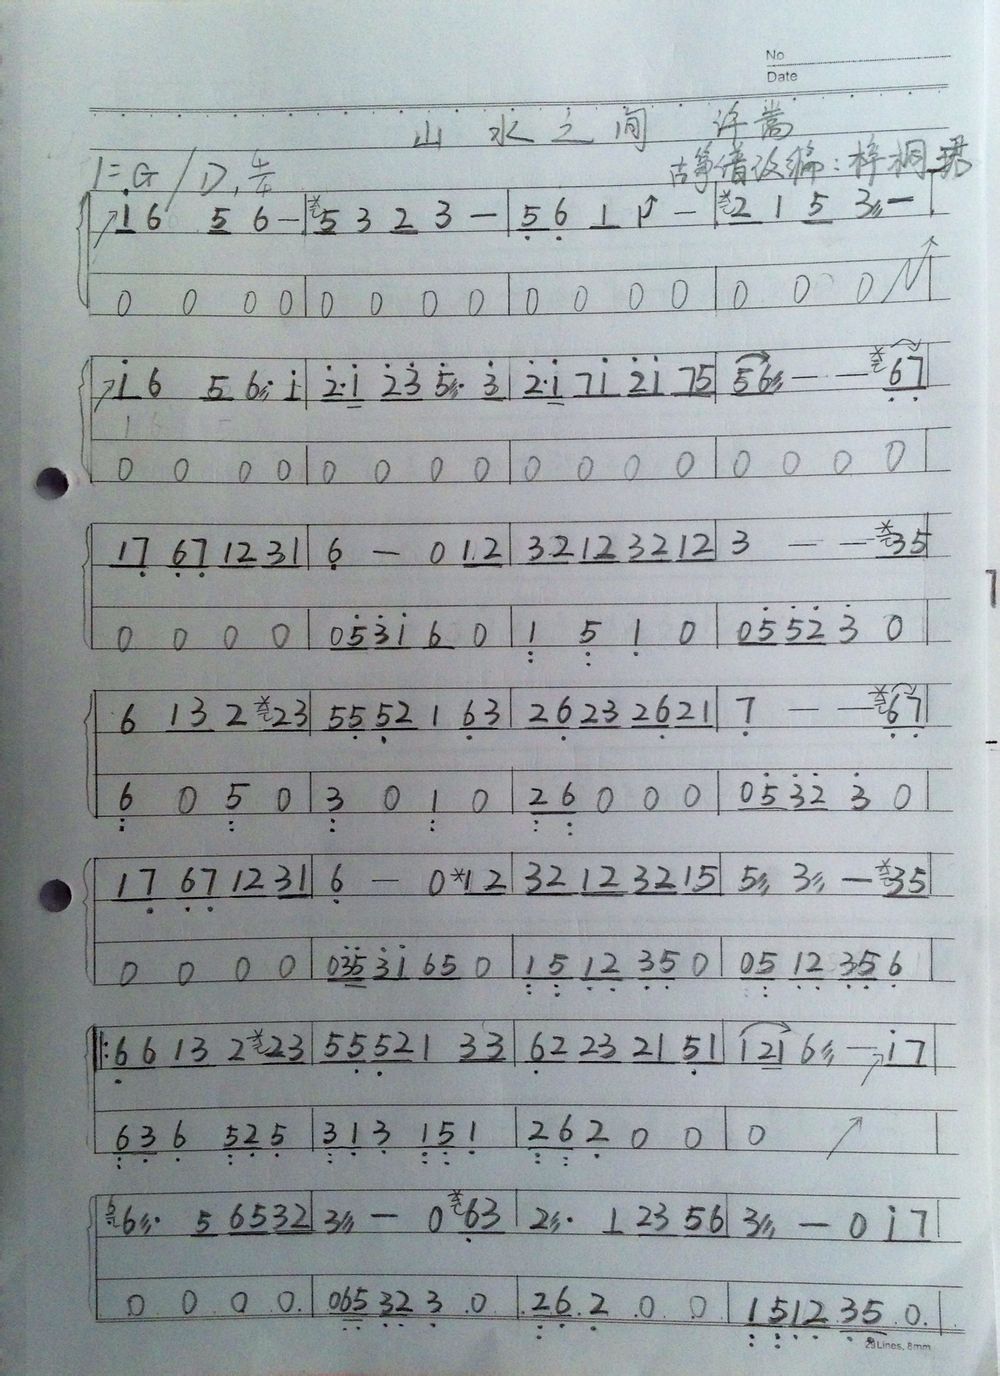 No
Date
山水之间 许嵩
1=G/D, 4/4 古筝谱改编:梓桐
1 6 5 6 — | 5 3 2 3 — | 5 6 1 1 — | 2 1 5 3 — |
0 0 0 0 | 0 0 0 0 | 0 0 0 0 | 0 0 0
1 6 5 6· 1 | 2·1 23 5· 3 | 2·1 71 21 75 | 56 — — 67 |
0 0 0 0 | 0 0 0 0 | 0 0 0 0 | 0 0 0 0 |
17 67 12 31 | 6 — 0 12 | 32 12 32 12 | 3 — — 35 |
0 0 0 0 | 05 31 6 0 | 1 5 1 0 | 05 52 3 0 |
6 13 2 23 | 55 52 1 63 | 26 23 26 21 | 7 — — 67 |
6 0 5 0 | 3 0 1 0 | 26 0 0 0 | 05 32 3 0 |
17 67 12 31 | 6 — 0 12 | 32 12 32 15 | 5 3 — 35 |
0 0 0 0 | 035 31 65 0 | 15 12 35 0 | 05 12 35 6 |
‖: 66 13 2 23 | 55 52 1 33 | 62 23 21 51 | 121 6 — 17 |
63 6 52 5 | 31 3 15 1 | 26 2 0 0 | 0 |
6· 5 65 32 | 3 — 0 63 | 2· 1 23 56 | 3 — 0 17 |
0 0 0 0 | 065 32 3 0 | 26 2 0 0 | 15 12 35 0 |
29Lines, 8mm